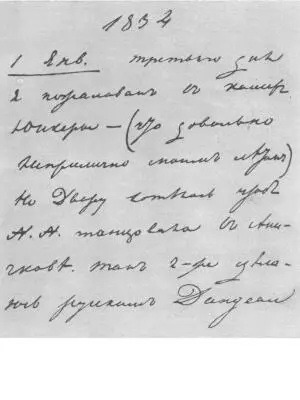 1834
1 Янв. третьего дня
я пожалованъ въ камеръ
Юнкеры — (что довольно
неприлично моимъ лѣтамъ)
Но Двору хотѣлось чтобъ
Н. Н. танцовала въ Ани-
чковѣ. такъ я же сдѣла-
юсь русскимъ Dangeau